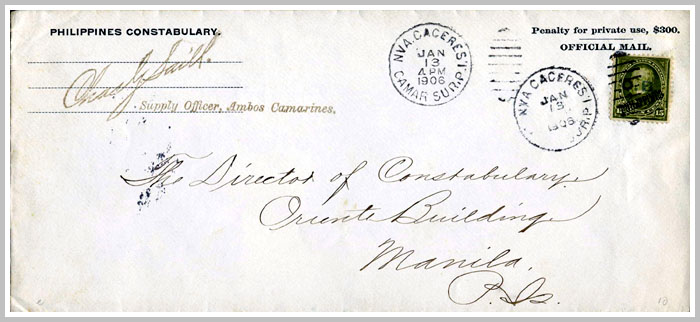 PHILIPPINES CONSTABULARY.
Supply Officer, Ambos Camarines.
NVA. CACERES. I.
JAN
13
4PM
1906
CAMAR SUR. P.
Penalty for private use, $300.
OFFICIAL MAIL.
NVA. CACERES. I.
JAN
13
1906
SUR. P.
15
The Director of Constabulary.
Oriente Building
Manila.
P. Is.
10